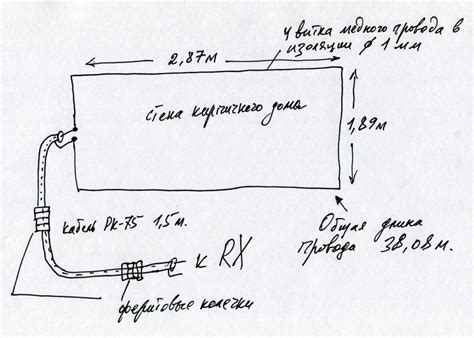 4 витка медного провода в
изоляции ϕ 1 мм
2,87м
стена кирпичного дома
1,89м
кабель РК-75 1,5 м.
Общая длина
провода 38,08 м.
к RX
ферритовые колечки